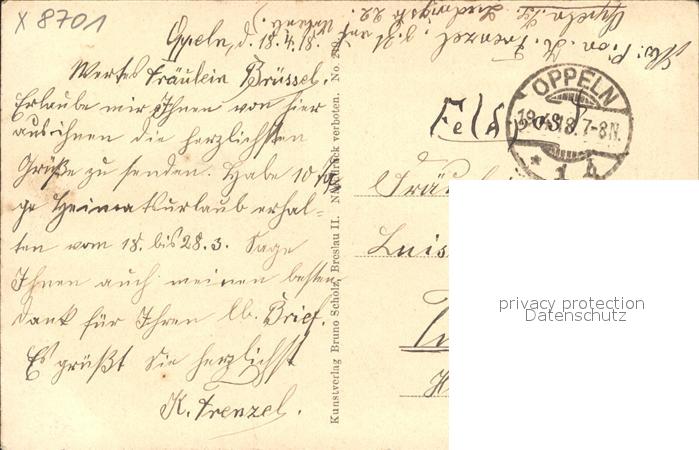 X 8701
Oppeln, d. 18.4.18.
Wertes Fräulein Brüssel.
Erlaube mir Ihnen von hier
aus ihnen die herzlichsten
Grüße zu senden. Habe 10 tä-
ge Heimatsurlaub erhal-
ten vom 18. bis 28.3. Sage
Ihnen auch meinen besten
Dank für Ihren lb. Brief.
Es grüßt Sie herzlichst
K. Frenzel.
Kunstverlag Bruno Scholz, Breslau II. Nachdruck verboten. No. 249
Frenzel, z. Zt. auf Urlaub
Oppeln
Ludwigstr. 22.
Feldpost
OPPELN
18.4.18. 7-8N.
* 1 h
Fräul
Luis
privacy protection
Datenschutz